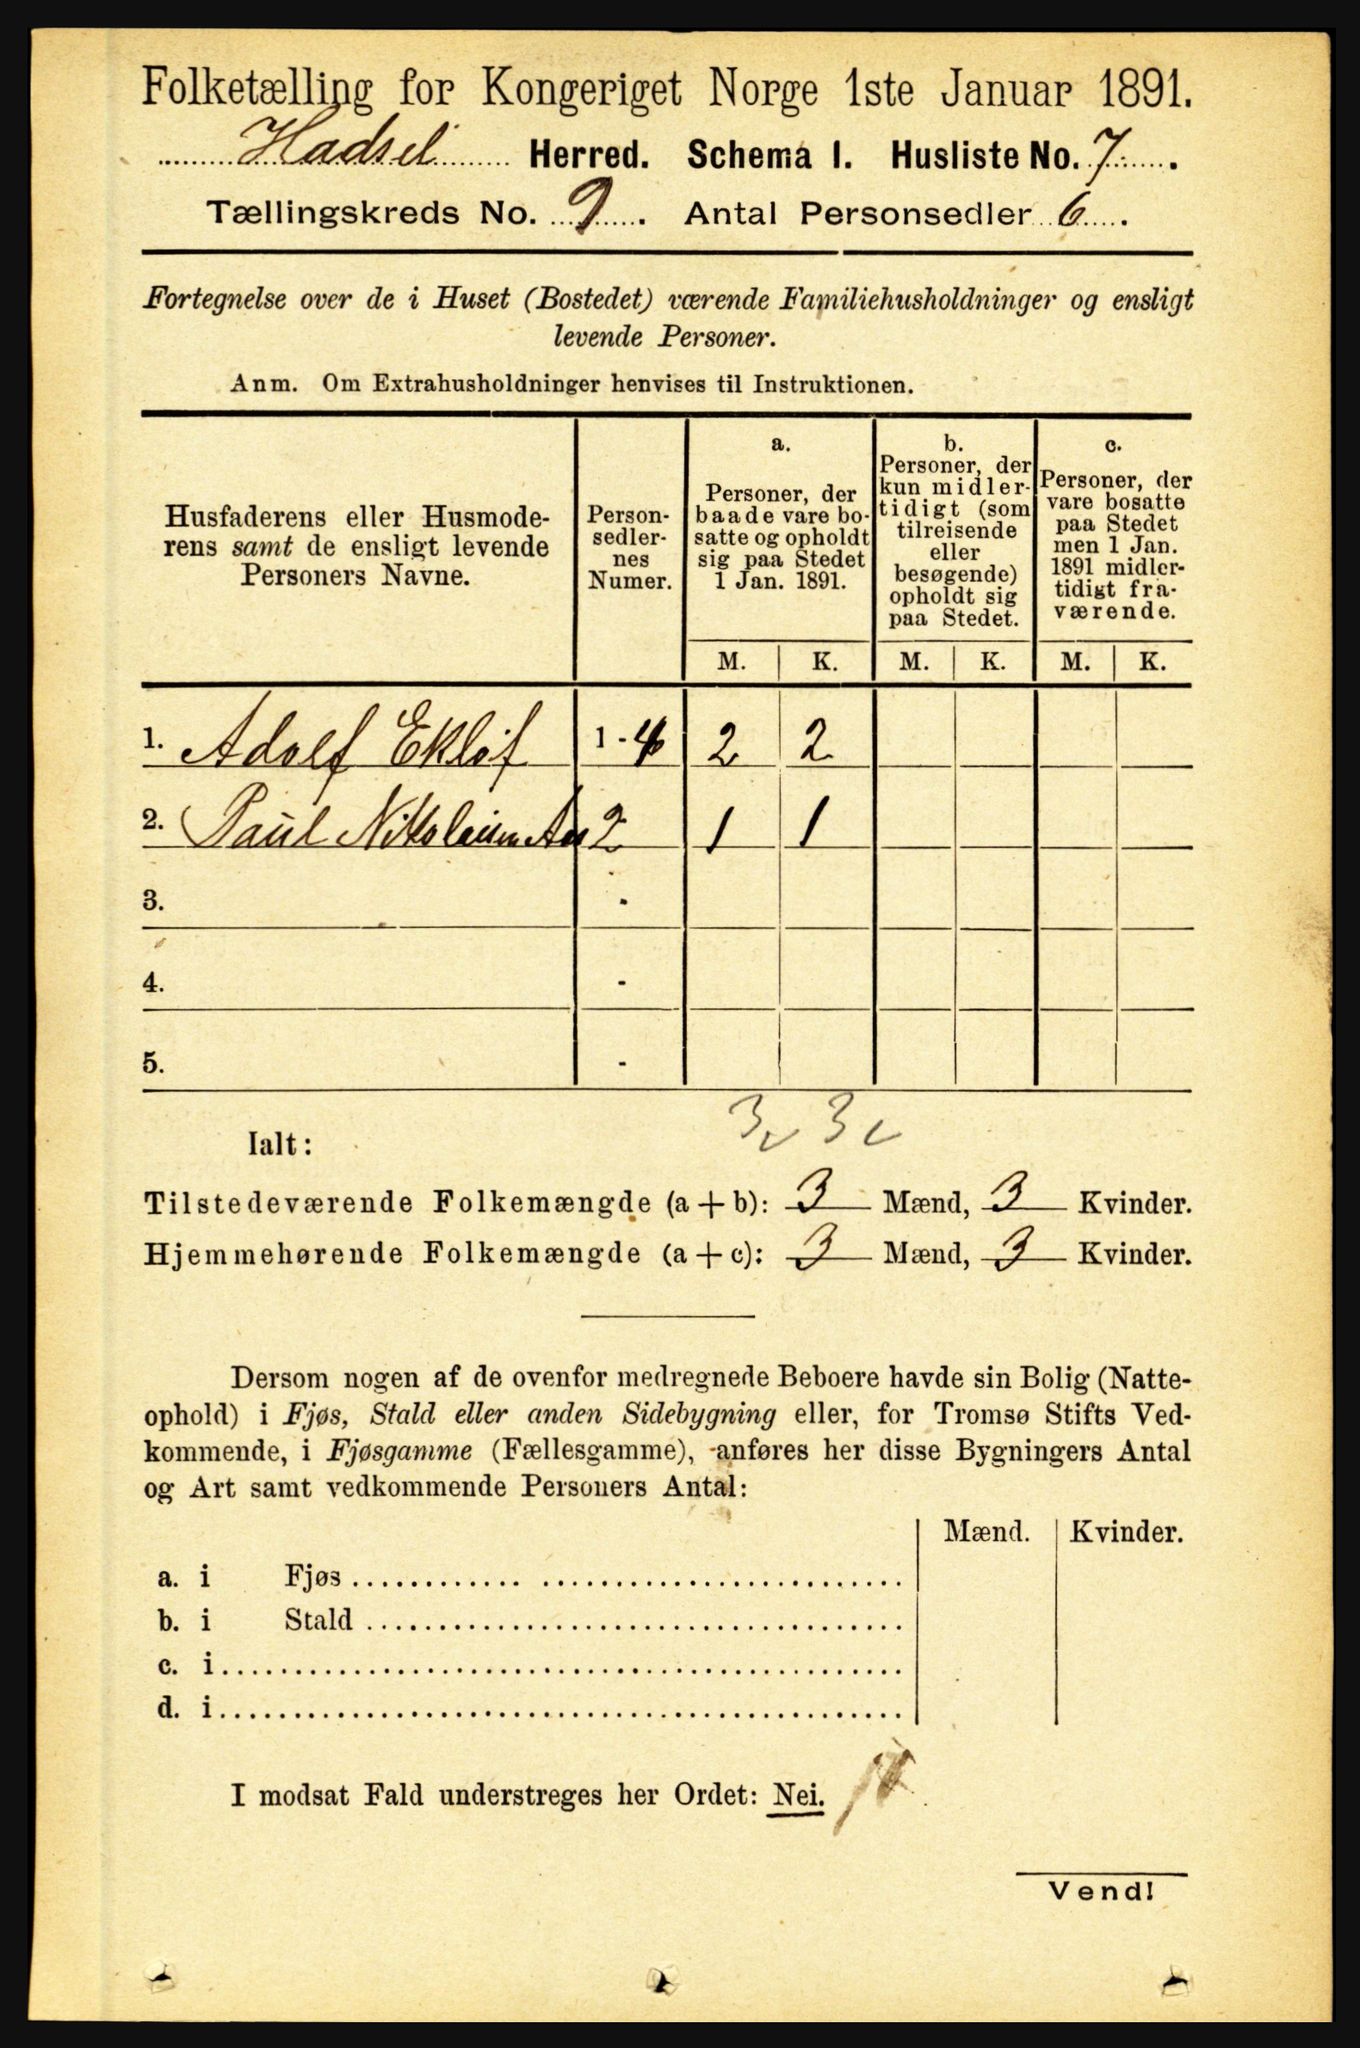 Folketælling for Kongeriget Norge 1ste Januar 1891.
Hadsel Herred. Schema I. Husliste No. 7.
Tællingskreds No. 9. Antal Personsedler 6.
Fortegnelse over de i Huset (Bostedet) værende Familiehusholdninger og ensligt
levende Personer.
Anm. Om Extrahusholdninger henvises til Instruktionen.
Husfaderens eller Husmode-
rens samt de ensligt levende
Personers Navne.
Person-
sedler-
nes
Numer.
a.
Personer, der
baade vare bo-
satte og opholdt
sig paa Stedet
1 Jan. 1891.
b.
Personer, der
kun midler-
tidigt (som
tilreisende
eller
besøgende)
opholdt sig
paa Stedet.
c.
Personer, der
vare bosatte
paa Stedet
men 1 Jan.
1891 midler-
tidigt fra-
værende.
M. K. M. K. M. K.
1. Adolf Ekløf 1 - 4 2 2
2. Paul 2 1 1
3. -
4. -
5. -
3 3
Ialt:
Tilstedeværende Folkemængde (a + b): 3 Mænd, 3 Kvinder.
Hjemmehørende Folkemængde (a + c): 3 Mænd, 3 Kvinder.
Dersom nogen af de ovenfor medregnede Beboere havde sin Bolig (Natte-
ophold) i Fjøs, Stald eller anden Sidebygning eller, for Tromsø Stifts Ved-
kommende, i Fjøsgamme (Fællesgamme), anføres her disse Bygningers Antal
og Art samt vedkommende Personers Antal:
Mænd. Kvinder.
a. i Fjøs
b. i Stald
c. i
d. i
I modsat Fald understreges her Ordet: Nei.
Vend!